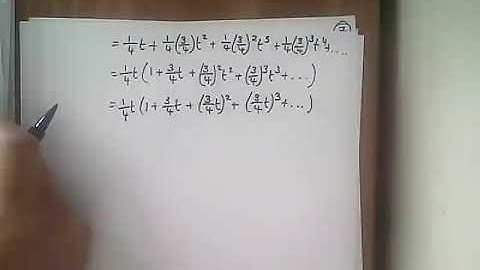 ②
= 1/4 t + 1/4 (3/4) t² + 1/4 (3/4)² t³ + 1/4 (3/4)³ t⁴ + ....
= 1/4 t (1 + 3/4 t + (3/4)² t² + (3/4)³ t³ + ...)
= 1/4 t (1 + 3/4 t + (3/4 t)² + (3/4 t)³ + ...)